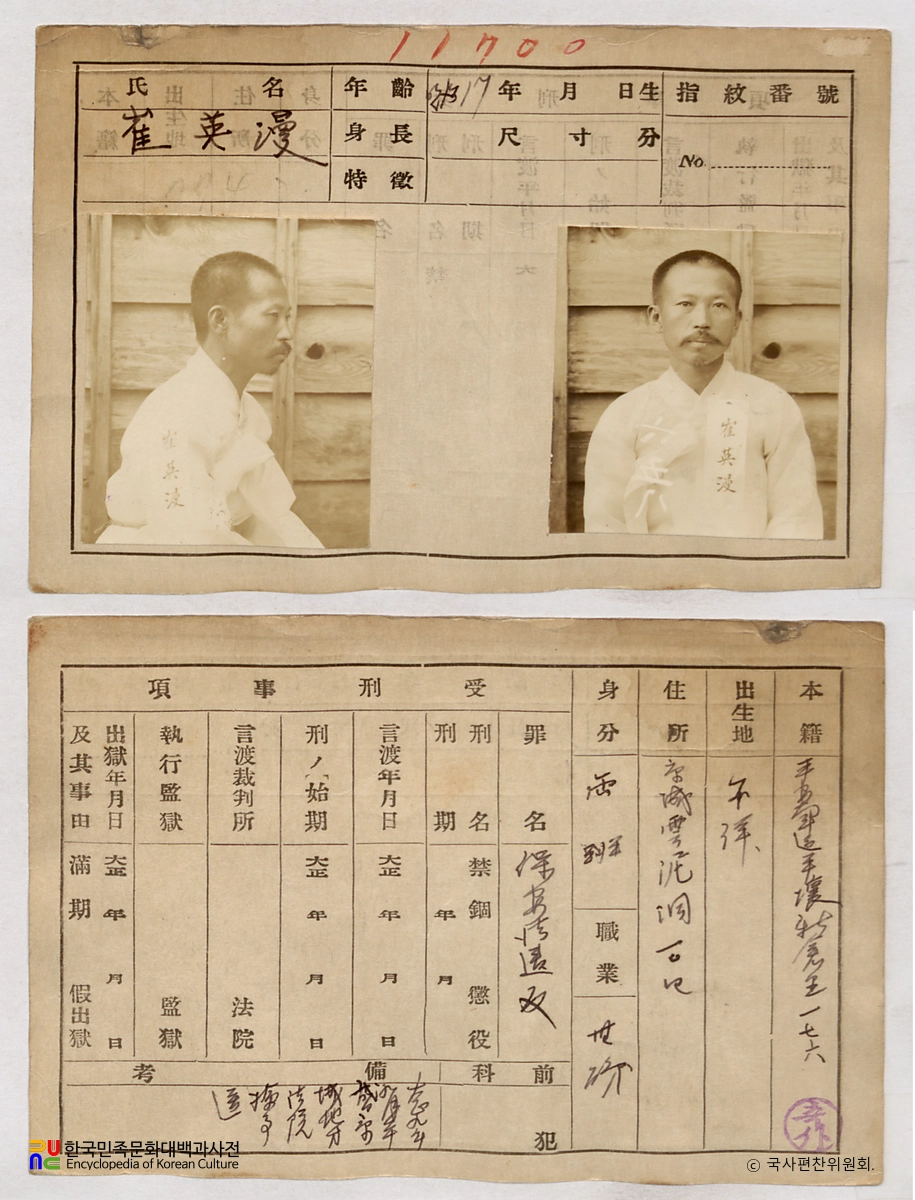 11700
氏名
崔英漫
年齡
17年 月 日生
身長
尺 寸 分
特徵
指紋番號
No.
崔英漫
六五八
崔英漫
本籍
出生地
不詳
住所
京城雲泥洞
身分
兩班
職業
受刑事項
罪名
保安法違反
刑名
禁錮 懲役
刑期
年 月
言渡年月日
大正 年 月 日
刑ノ始期
大正 年 月 日
言渡裁判所
法院
執行監獄
監獄
出獄年月日
大正 年 月 日
及其事由
滿期 假出獄
前科
犯
備考
한국민족문화대백과사전
Encyclopedia of Korean Culture
© 국사편찬위원회.